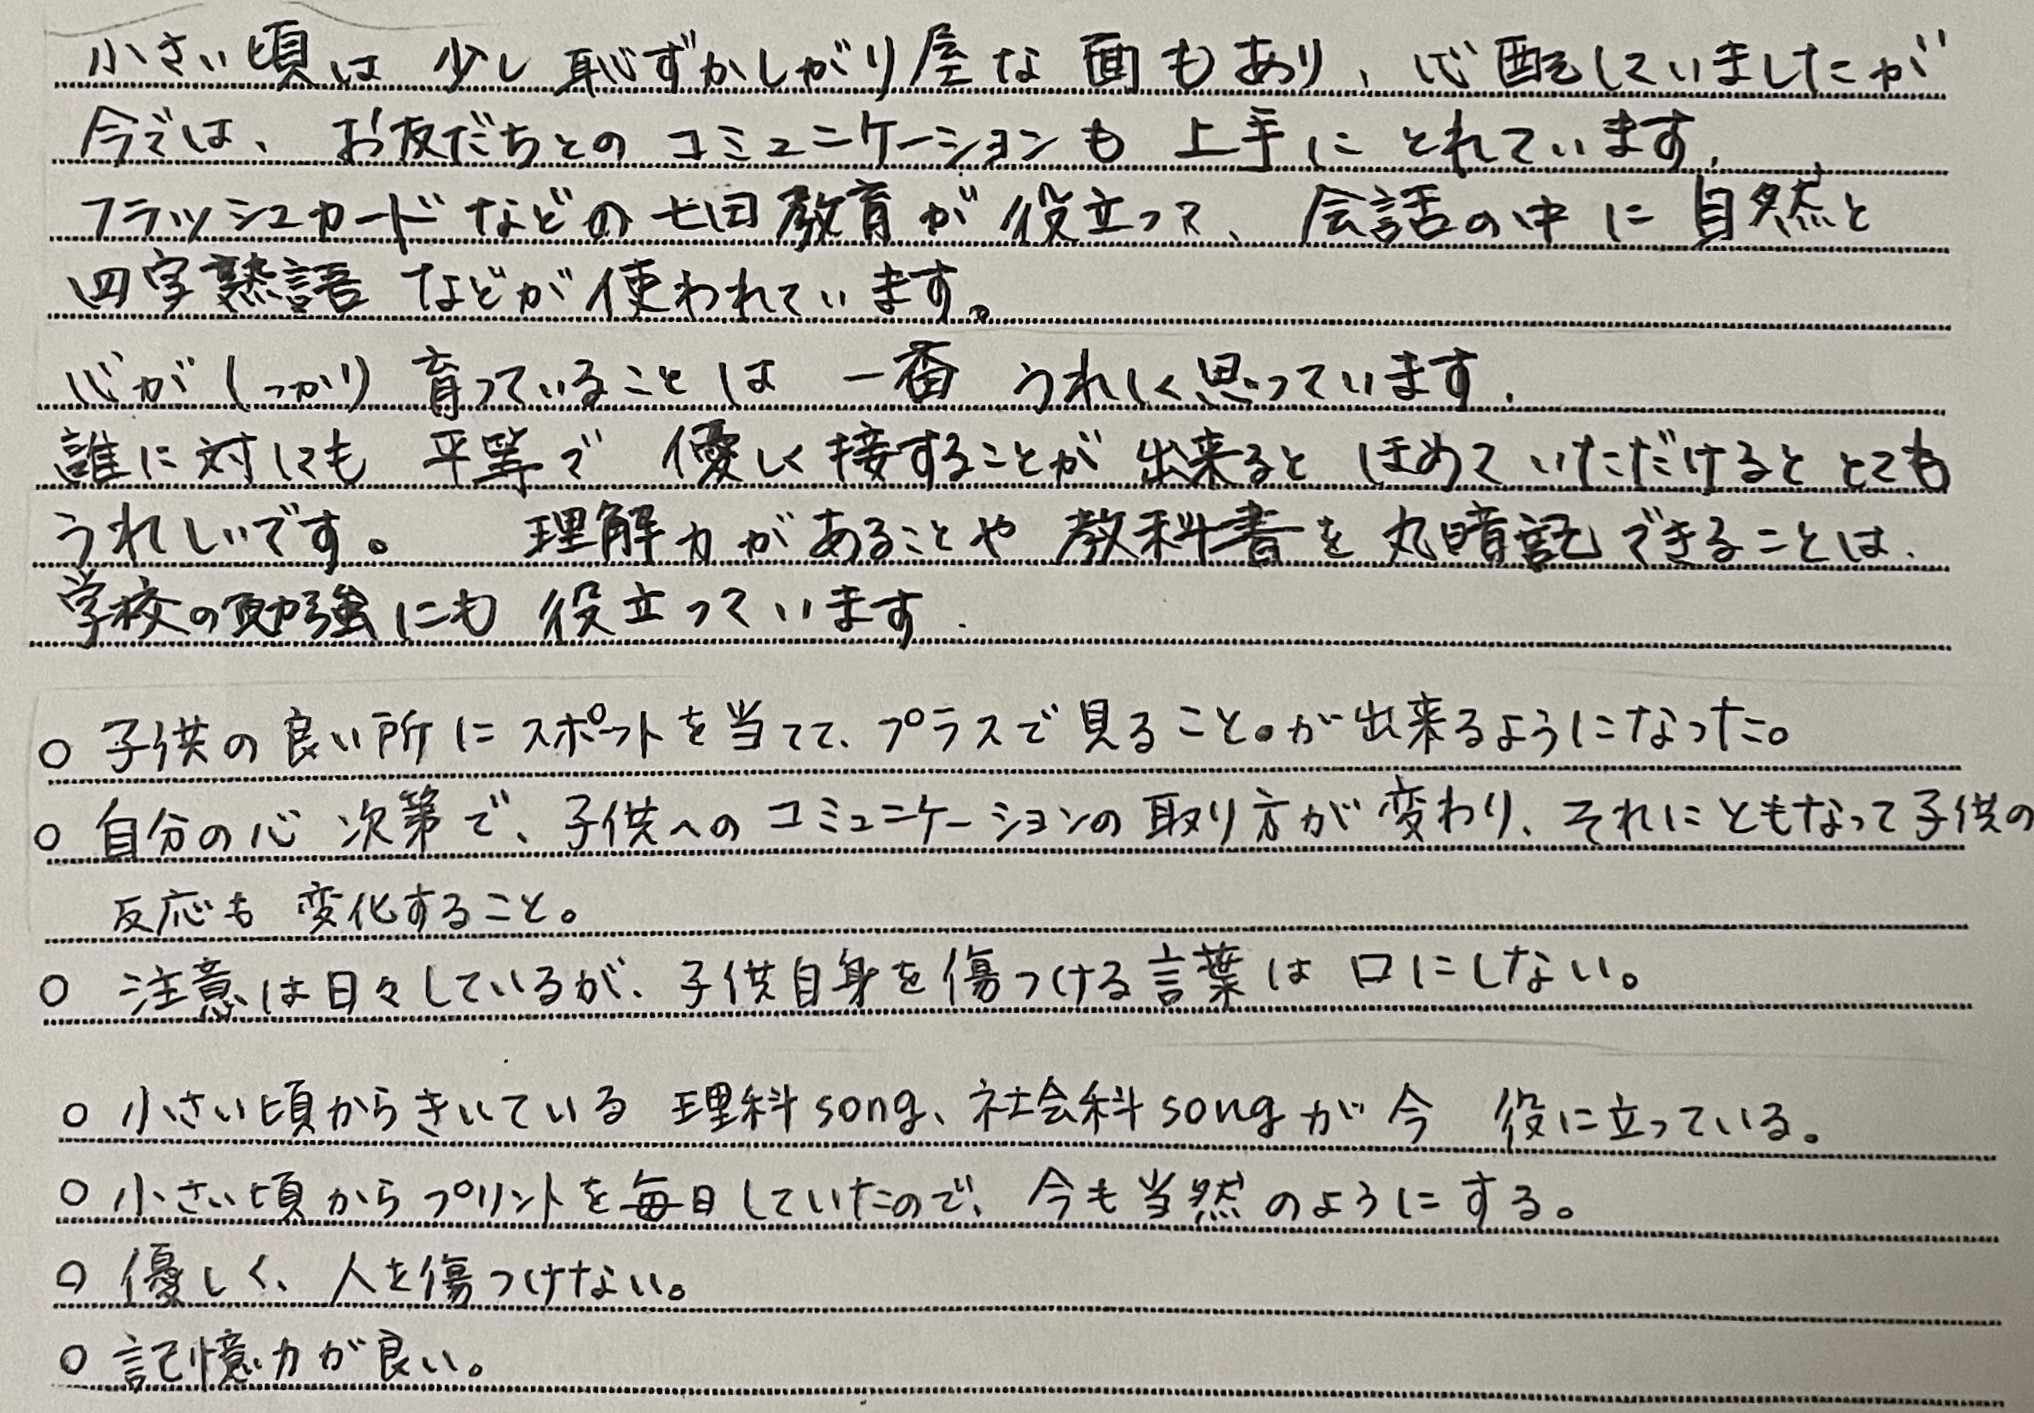 小さい頃は 少し恥ずかしがり屋な面もあり、心配していましたが
今では、お友だちとのコミュニケーションも上手にとれています。
フラッシュカードなどの七田教育が役立って、会話の中に自然と
四字熟語などが使われています。
心がしっかり育っていることは一番うれしく思っています。
誰に対しても平等で優しく接することが出来るとほめていただけるととても
うれしいです。 理解力があることや教科書を丸暗記できることは、
学校の勉強にも役立っています.
○ 子供の良い所にスポットを当てて、プラスで見ること。が出来るようになった。
○ 自分の心次第で、子供へのコミュニケーションの取り方が変わり、それにともなって子供の
反応も変化すること。
○ 注意は日々しているが、子供自身を傷つける言葉は口にしない。
○ 小さい頃からきいている 理科song、社会科songが今 役に立っている。
○ 小さい頃からプリントを毎日していたので、今も当然のようにする。
○ 優しく、人を傷つけない。
○ 記憶力が良い。